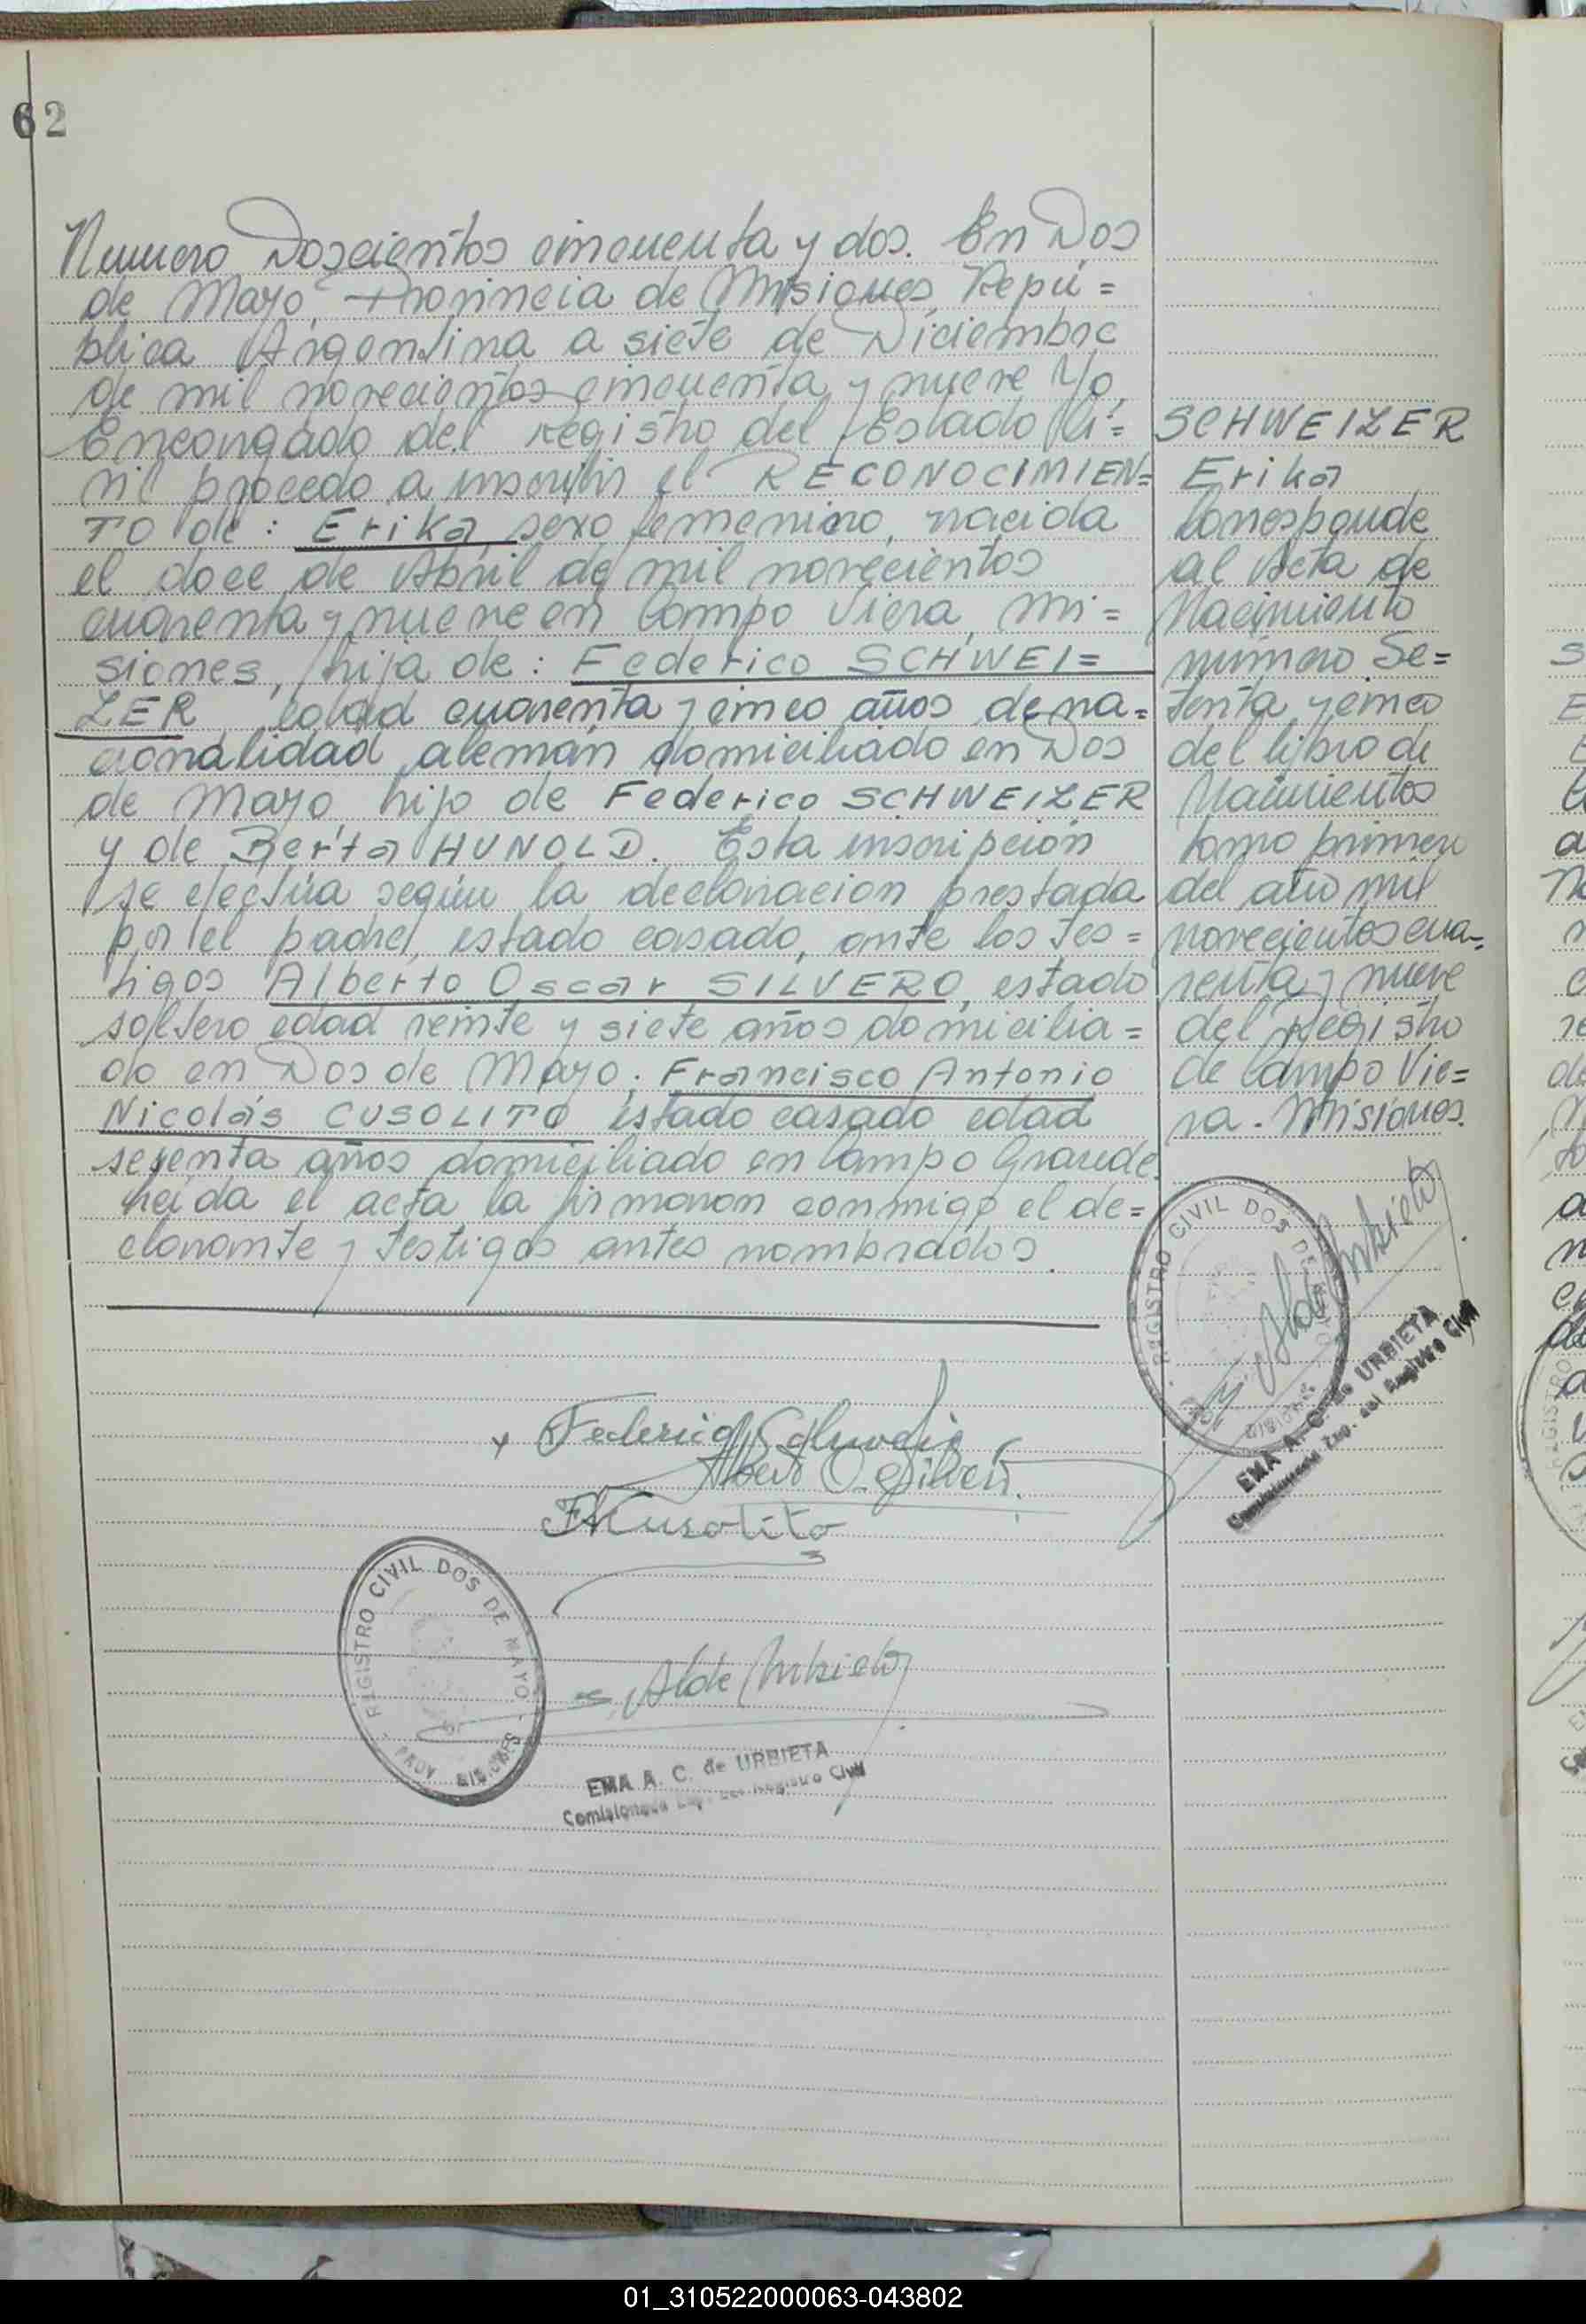 62
Numero Doscientos cincuenta y dos. En Dos
de Mayo, Provincia de Misiones, Repú=
blica Argentina a siete de Diciembre
de mil novecientos cincuenta y nueve Yo,
Encargado del Registro del Estado Ci=
vil procedo a inscribir el RECONOCIMIEN=
TO de : Erika sexo femenino, nacida
el doce de Abril de mil novecientos
cuarenta y nueve en Campo Viera, Mi=
siones, hija de : Federico SCHWEI=
ZER edad cuarenta y cinco años de na=
cionalidad alemán domiciliado en Dos
de Mayo hijo de Federico SCHWEIZER
y de Berta HUNOLD. Esta inscripción
se efectúa según la declaracion prestada
por el padre, estado casado, ante los tes=
tigos Alberto Oscar SILVERO, estado
soltero edad veinte y siete años domicilia=
do en Dos de Mayo; Francisco Antonio
Nicolás CUSOLITO estado casado edad
sesenta años domiciliado en Campo Grande.
Leida el acta la firmaron conmigo el de=
clarante y testigos antes nombrados.
SCHWEIZER
Erika
Corresponde
al Acta de
Nacimiento
número Se=
tenta y cinco
del libro de
Nacimientos
tomo primero
del año mil
novecientos cua=
renta y nueve
del Registro
de Campo Vie=
ra. Misiones.
REGISTRO CIVIL DOS DE MAYO
MISIONES
EMA A. C. de URBIETA
Comisionada Enc. del Registro Civil
x Federico
Alberto O. Silvero
FACusolito
REGISTRO CIVIL DOS DE MAYO
PROV. MISIONES
A C de Urbieta
EMA A. C. de URBIETA
Comisionada Enc. del Registro Civil
01_310522000063-043802